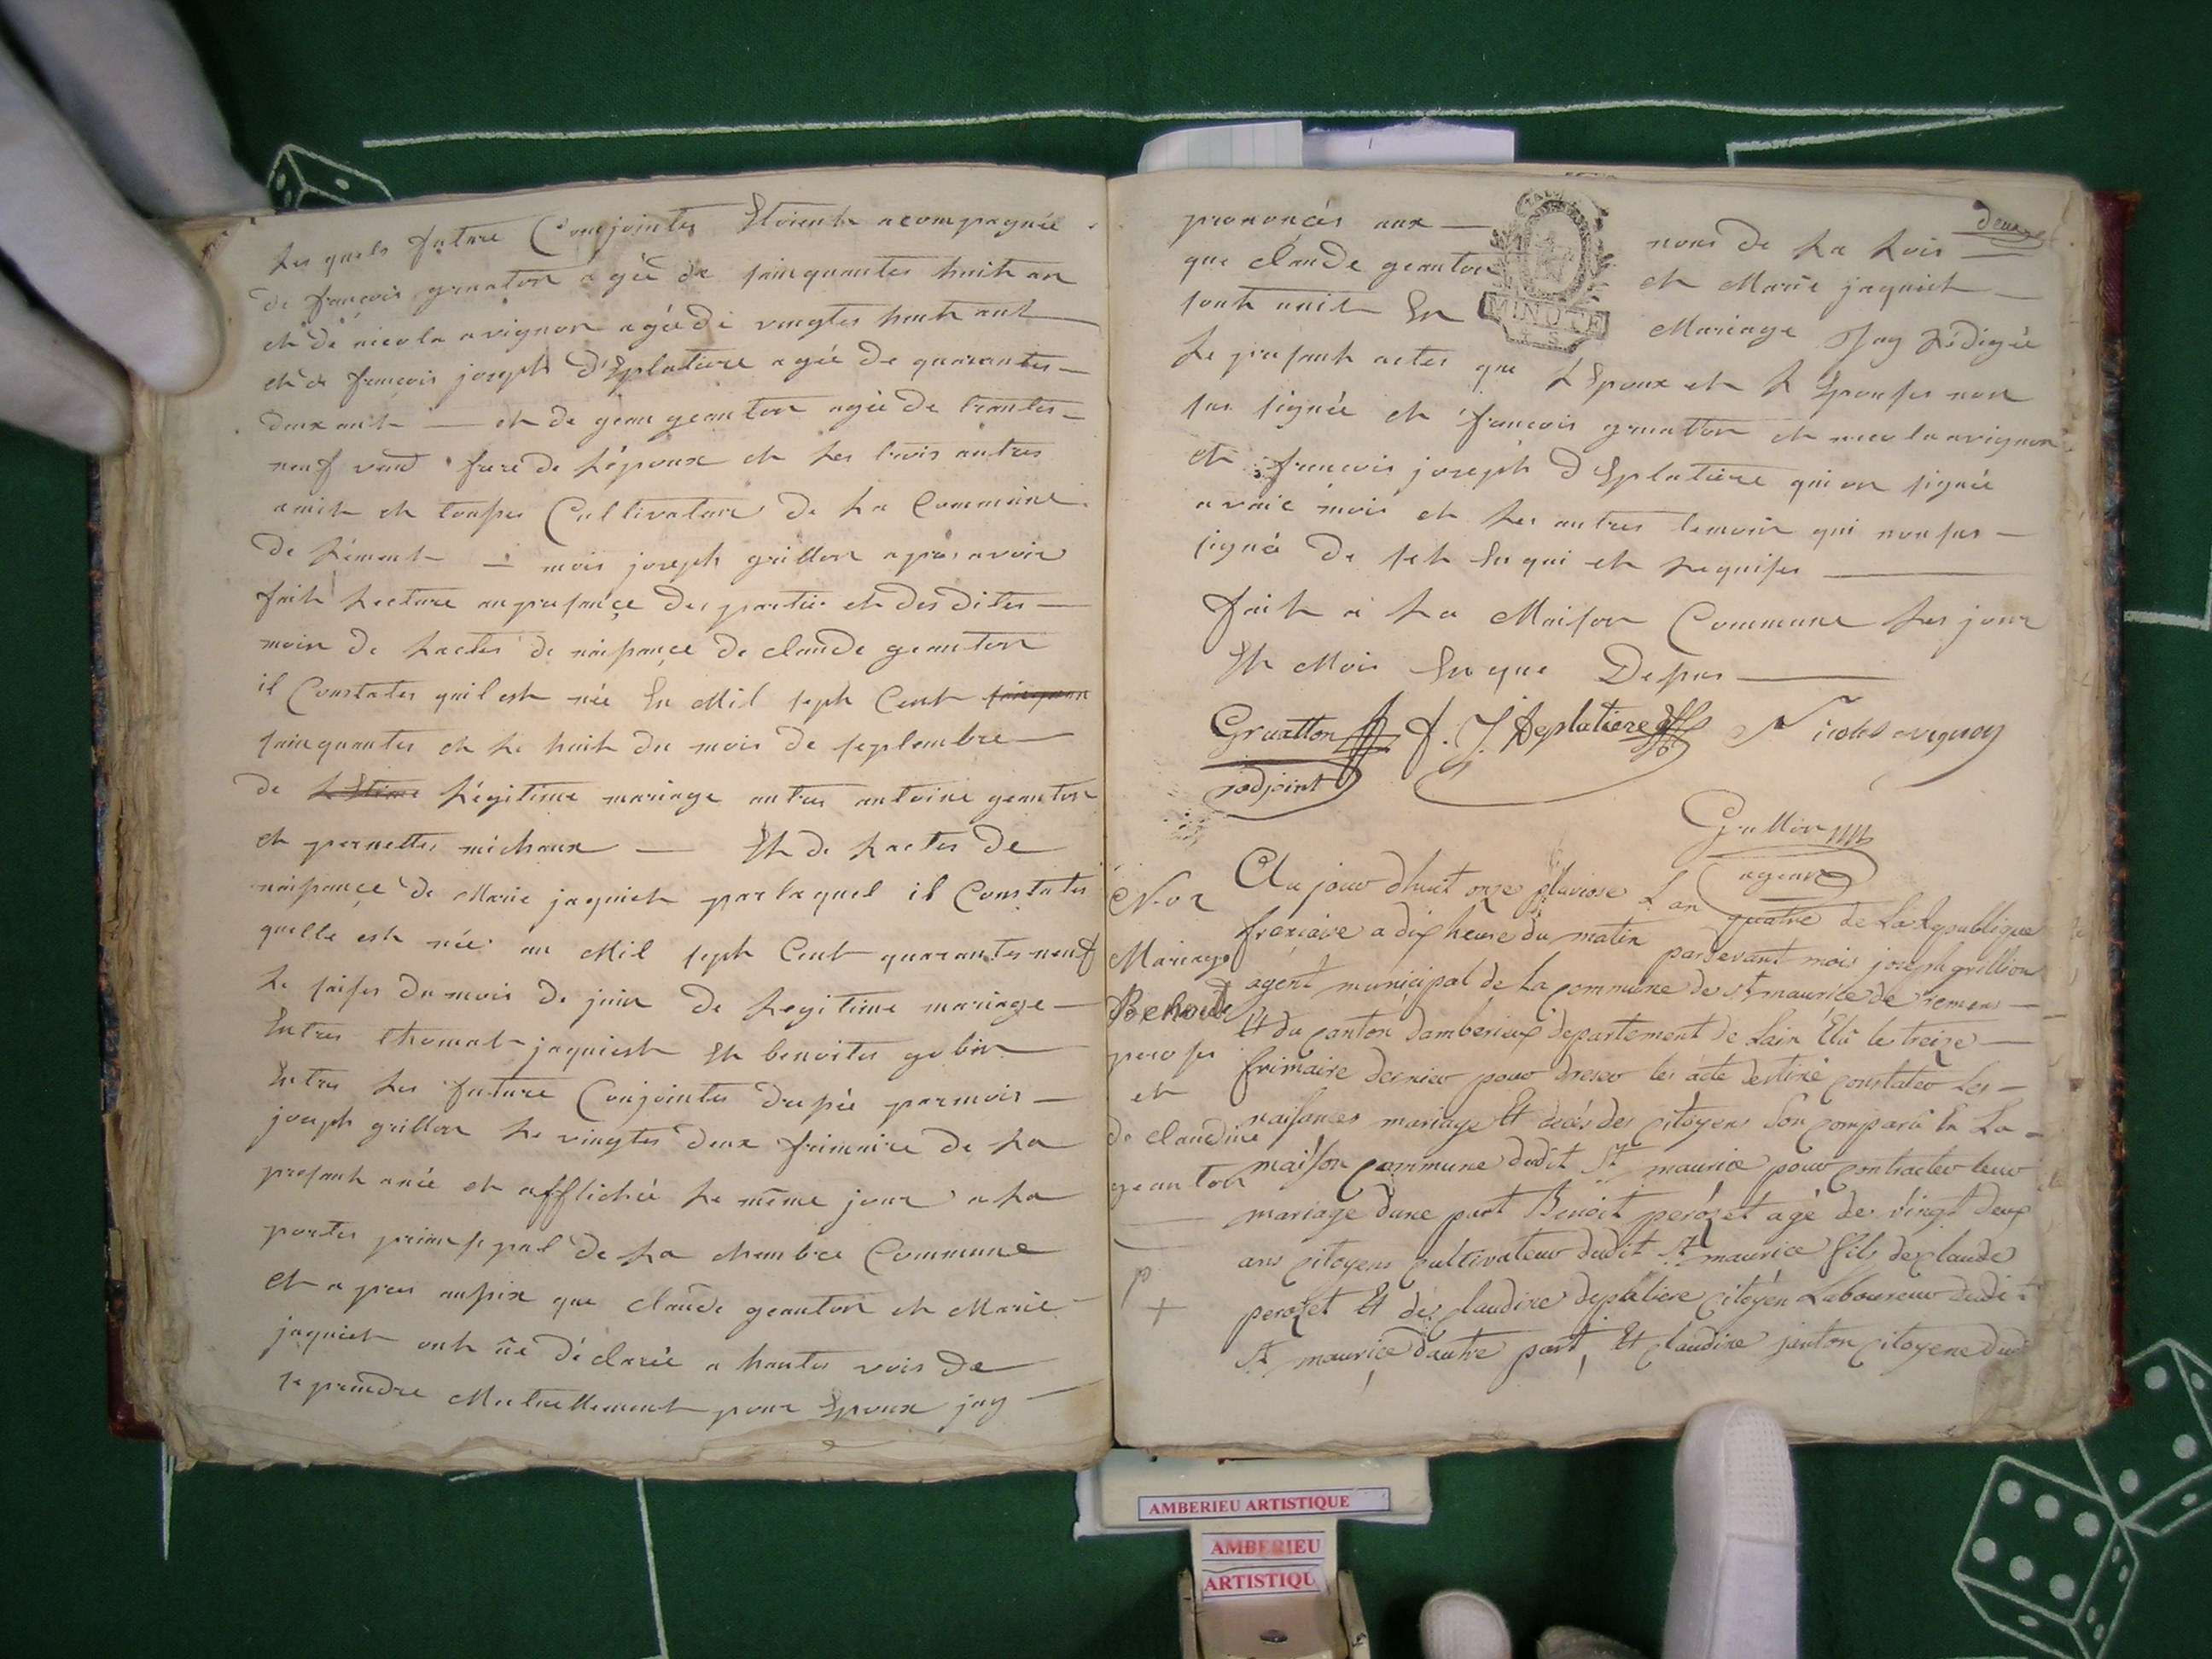 Les quels future Conjointes Etoient acompagnée
de françois gruaton agée de sainquantes huit an
et de nicola avignon agée de vengtes huit ant
et de françois joseph d'Eplatiere agée de quarantes
deux ant — et de gean geanton agée de trantes
neuf frere de Lépoux et Les trois autres
amit et tousses Cultivature de La Commune
de Rément — mois joseph grillon apres avoir
fait Lecture anpresançe des partie et des dites
moin de Lactes de naissançe de claude geanton
il Constates quil est née En Mil seph Cent
sainquantes et Le huit du mois de septembre
de Légitime mariage antres antoine geanton
et pernettes michaux — Et de Lactes de
naissançe de Marie jaquiet par laquel il Constates
quelle est née an Mil seph Cent quarantes neuf
Le saises du mois de juin de Legitime mariage
Entres thomat jaquiest Et benoites gobin
Entres Les future Conjointes par mois
joseph grillon Le vingtes deux frimaire de La
presant anée et afflichée Le même jour a La
portes prinsipal de La chambre Commune
et apres aussix que claude geanton et Marie
jaquiet ont de déclarée a hautes vois de
se prendre Mutuellement pour Epoux jay
deux
prononcés aux — nons de La Lois
que claude geanton et Marie jaquiet
sont unit En Mariage Jay Rédigée
MINUTE
Le presant actes que LEpoux et LEpouses non
pas signée et françois gruatton et nicola avignon
et françois joseph dEplatiere qui on signée
avaic mois et Les autres temoin qui non pas
signé de set Enqui et Requises
fait a La Maison Commune Les jour
Et Mois Enque Depus
Gruatton F. J. Deplatiere Nicolas avignon
adjoint
Grillion
agent
No 2
Mariage
Be
peroses
et
de claudine
geanton
P
+
Au jour dhuit onze pluviose Lan quatre de La Republique
franscaise a dix heure du matin pardevant mois joseph grillion
agent municipal de La commune de st maurice de remens
Et du canton damberieux departement de Lain Elû le treize
frimaire dernier pour dreser les acte destiné constater Les
naisances mariage Et décés des citoyens Son comparû En La
maison commune dudit St maurice pour contracter leur
mariage dune part Benoit perozet agé de vingt deux
ans citoyens cultivateur dudit St maurice fils de claude
perozet Et de claudine deplatiere citoyen Laboureur dudi
St maurice dautre part, Et claudine janton citoyene dudi
AMBERIEU ARTISTIQUE
AMBERIEU
ARTISTIQU